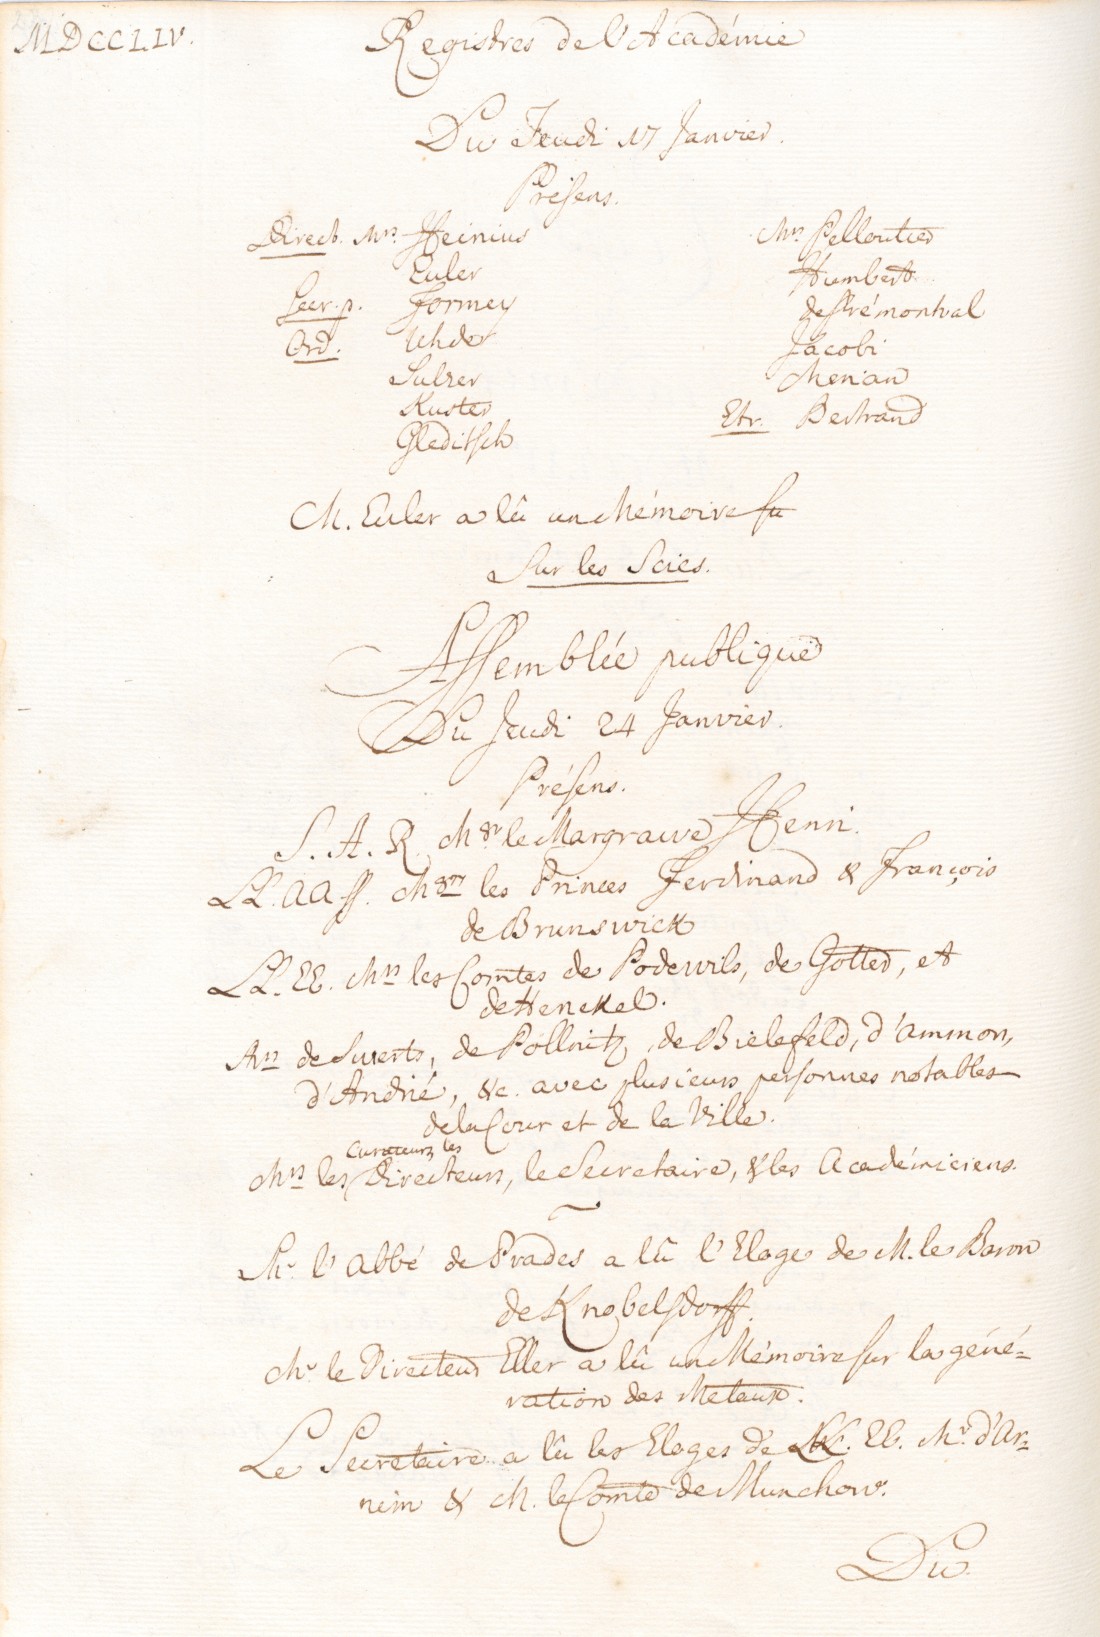 MDCCLIV.
Registres de l'Académie
Du Jeudi 17 Janvier.
Présens.
Direct. Mrs. Heinius
Euler
Secr. p. Formey
Ord. Uhder
Sulzer
Kuster
Gleditsch
Mrs Pelloutier
Humbert
de Prémontval
Jacobi
Merian
Etr. Bertrand
M. Euler a lû un Mémoire su
Sur les Scies.
Assemblée publique
Du Jeudi 24 Janvier.
Présens.
S. A. R. Mgr le Margrave Henri.
LL. AA SS. Mgrs les Princes Ferdinand & François
de Brunswick
LL. EE. Mrs les Comtes de Podewils, de Gotter, et
de Henckel.
Mrs de Swerts, de Pöllnitz, de Bielefeld, d'Ammon,
d'André, &c. avec plusieurs personnes notables
de la Cour et de la Ville.
Curateurs, les
Mrs les Directeurs, le Secretaire, & les Académiciens.
Mr l'Abbé de Prades a lû l'Eloge de M. le Baron
de Knobelsdorff.
Mr le Directeur Eller a lû un Mémoire sur la géné-
ration des Metaux.
Le Secretaire a lû les Eloges de LL. EE. Mr. d'Ar-
nim & M. le Comte de Munchow.
Du